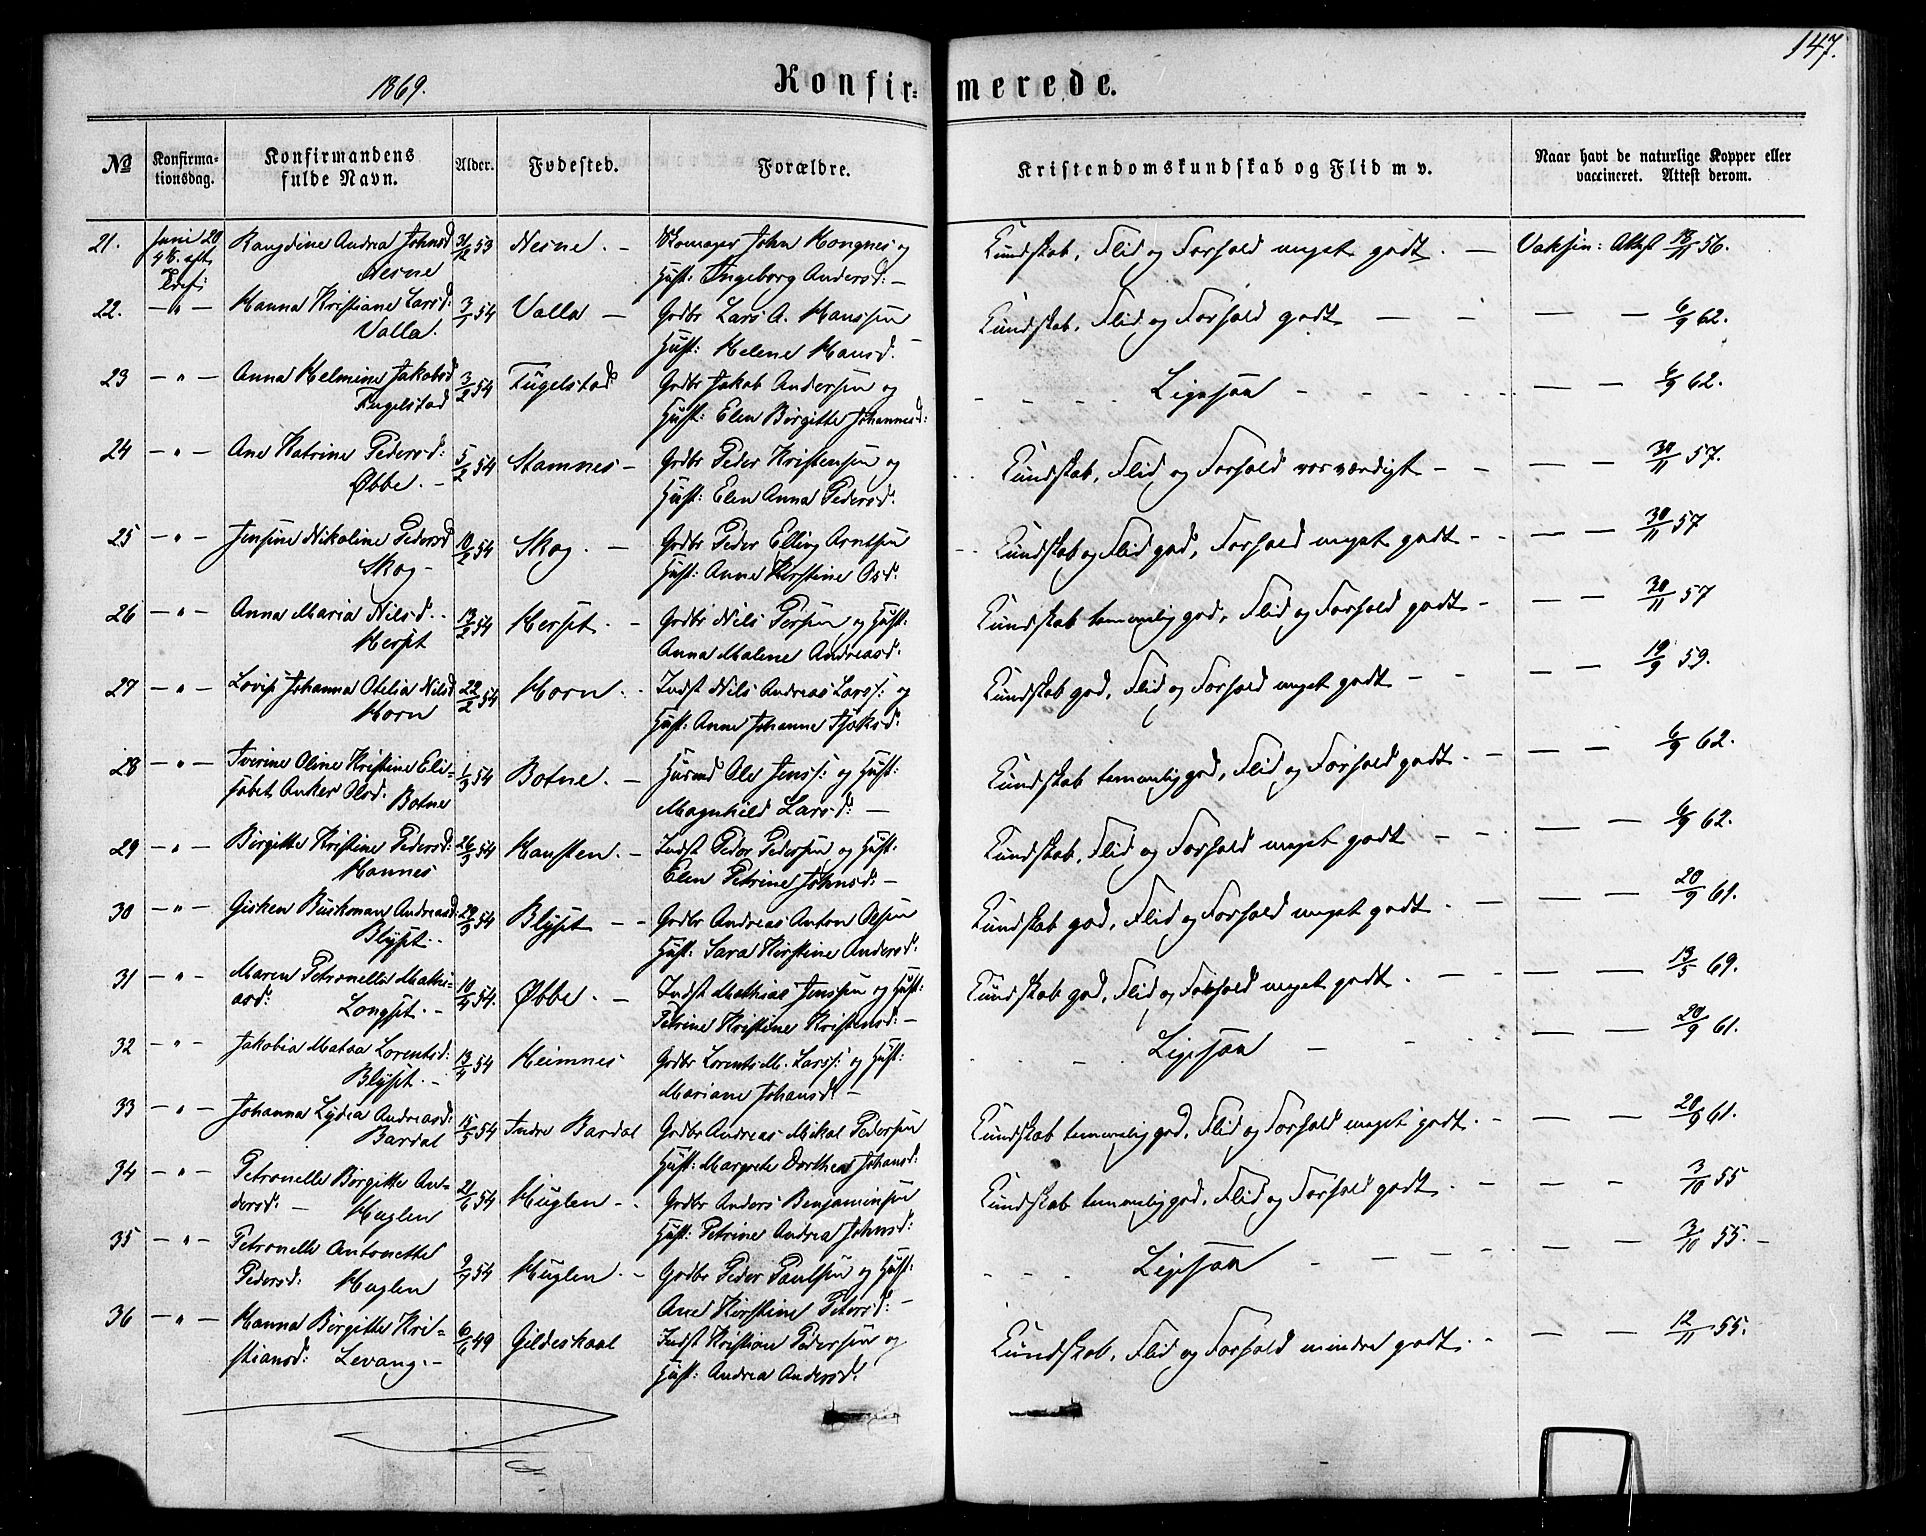 147.
1869.
Konfir= merede.
No
Konfirma-
tionsdag.
Konfirmandens
fulde Navn.
Alder.
Fødested.
Forældre.
Kristendomskundskab og Flid m v.
Naar havt de naturlige Kopper eller
vaccineret. Attest derom.
21. Juni 20 Rangdine Andrea Johnsd. 31/12 53 Nesne. – John Kongnes og Kundskab, Flid og Forhold meget godt. – Vaksin: Attest 56.
Nesne Hust: Ingeborg Andersd: –
22. – " – Hanna Kristiane Larsd: 3/1 54 Valla – Grdbr Lars A. Hanssen Kundskab, Flid og Forhold godt – – – – 6/9 62.
Valla. Hust: Helene Hansd.
23 – " – Anna Helmine Jakobsd 3/2 54 Fugelstad Grdbr Jakob Andersen og Ligesaa – – – – 6/9 62.
Fugelstad Hust: Elen Birgitte Johannesd:
24 – " – Ane Katrine Pedersd: 5/2 54 Stamnes – Grdbr Peder Kristensen og Kundskab, Flid og Forhold værdigt – – – – 30/11 57.
Øbbe. – Hust: Elen Anna Pedersd:
25 – " – Jensine Nikoline Pedersd 10/2 54 Skog. – Grdbr Peder Elling Arntsen Kundskab og Flid god, Forhold meget godt – – – – 30/11 57
Skog – Hust: Anne Kirstine Osd.
26 – " – Anna Maria Nilsd. 13/2 54 Hersit. – Grdbr Nils Persen og Hust: Kundskab temmelig god, Flid og Forhold godt – – – 30/11 57
Hersit Anna Malene Andreasd.
27 – " – Lovise Johanna Otelia Nilsd 22/2 54 Horn. – Indst Nils Andreas Larss: og Kundskab god, Flid og Forhold meget godt – – – – 19/9 59.
Horn Hust: Anne Johanne
28 – " – Iverine Oline Kristine Eli- 1/3 54 Botne. – Husmd Ole Jenss: og Hust: Kundskab temmelig god, Flid og Forhold godt. – – – 6/9 62.
sabet Anker Olsd. Botne Magnhild Larsd: –
29 – " – Birgitte Kristine Pedersd: 26/3 54 Hansten. – Indst Peder Pedersen og Hust: Kundskab, Flid og Forhold meget godt – – – – 6/9 62.
Hannes Elen Petrine Johnsd: –
30 – " – Gisken Andreasd: 29/3 54 Blysit – – Grdbr Andreas Anton Olsen Kundskab god, Flid og Forhold meget godt. – – – 20/9 61.
Blysit. Hust: Sara Kirstine Andersd:
31 – " – Maren Petronelle Mathi- 10/4 54. Øbbe. – Indst Mathias Jenssen og Hust: Kundskab god, Flid og Forhold meget godt. – – – 13/5 69.
asd: Longsit. – Petrine Kristine Kristensd: –
32 – " – Jakobia Matea Lorentsd: 13/4 54 Heimnes Grdbr Lorents M. Larss: og Hust: Ligesaa – – – – 20/9 61.
Blysit. – Mariane Johansd: –
33 – " – Johanna Lydia Andreasd: 15/5 54 Indre Bardal Grdbr Andreas Mikal Pedersen Kundskab temmelig god, Flid og Forhold meget godt. – – – 20/9 61.
Bardal Hust: Margrete Dorthea Johansd:
34 – " – Petronelle Birgitte An- 21/6 54 Huglen – Grdbr Anders Benjaminsen Kundskab temmelig god, Flid og Forhold godt. – – – – 3/10 55
dersd: – Huglen Hust: Petrine Andrea Johnsd:
35 – " – Petronelle Antonette 9/7 54 Huglen. – Grdbr Peder Paulsen og Hust: Ligesaa – – – – 3/10 55. –
Pedersd: Huglen Ane Kirstine Petersd: –
36 Hanna Birgitte Kri- 6/6 49 Gildeskaal Indst Kristian Pedersen og Kundskab, Flid og Forhold mindre godt. – – – 12/11 55.
stiansd: Levang. – Hust: Andrea Andersd: